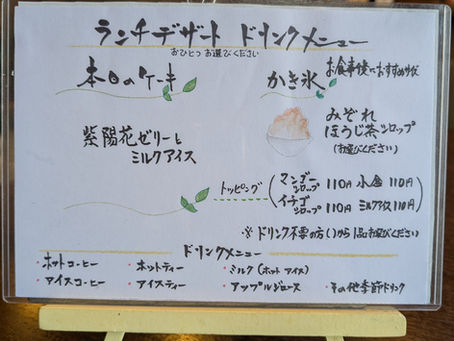 ランチデザート ドリンクメニュー
おひとつお選びください
本日のケーキ
かき氷
お食事後におすすめサイズ
みぞれ
ほうじ茶シロップ
(お選びください)
紫陽花ゼリーと
ミルクアイス
トッピング
マンゴーシロップ 110円 小金 110円
イチゴシロップ 110円 ミルクアイス 110円
※ドリンク不要の方()から1品お選びください
ドリンクメニュー
・ホットコーヒー ・ホットティー ・ミルク(ホット アイス)
・アイスコーヒー ・アイスティー ・アップルジュース ・その他季節ドリンク